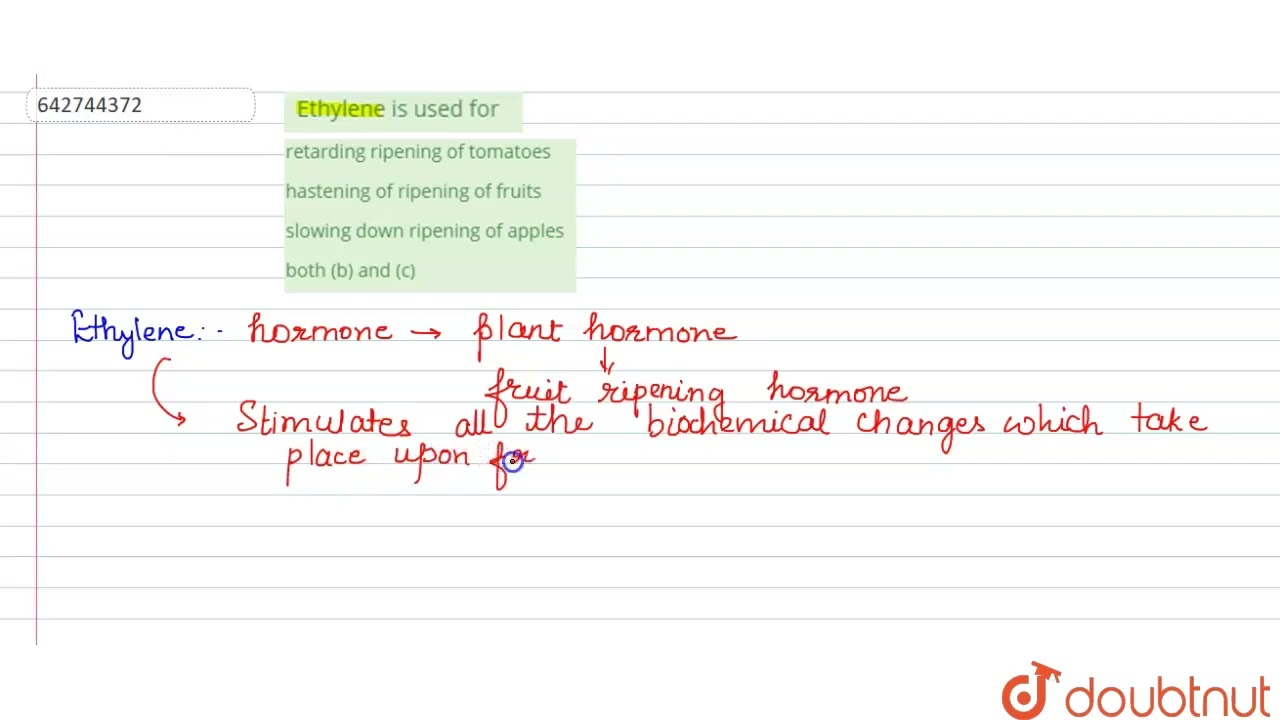 642744372
Ethylene is used for
retarding ripening of tomatoes
hastening of ripening of fruits
slowing down ripening of apples
both (b) and (c)
Ethylene:- hormone → plant hormone
↓
fruit ripening hormone
Stimulates all the biochemical changes which take
place upon
doubtnut